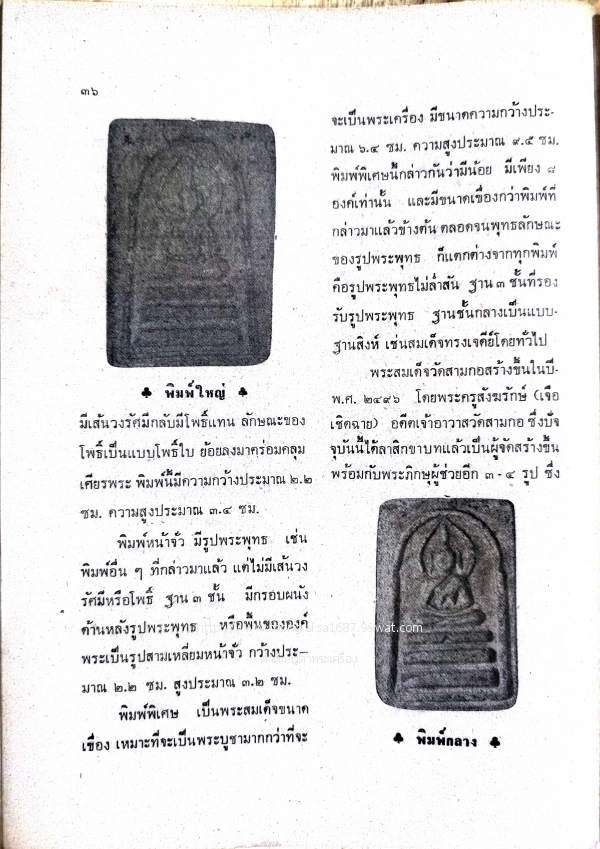 ๓๖
♣ พิมพ์ใหญ่ ♣
มีเส้นวงรัศมีกลับมีโพธิ์แทน ลักษณะของ
โพธิ์เป็นแบบโพธิ์ใบ ย้อยลงมาคร่อมคลุม
เศียรพระ พิมพ์นี้มีความกว้างประมาณ ๒.๒
ซม. ความสูงประมาณ ๓.๔ ซม.
พิมพ์หน้าจั่ว มีรูปพระพุทธ เช่น
พิมพ์อื่น ๆ ที่กล่าวมาแล้ว แต่ไม่มีเส้นวง
รัศมีหรือโพธิ์ ฐาน ๓ ชั้น มีกรอบผนัง
ด้านหลังรูปพระพุทธ หรือพื้นขององค์
พระเป็นรูปสามเหลี่ยมหน้าจั่ว กว้างประ-
มาณ ๒.๒ ซม. สูงประมาณ ๓.๒ ซม.
พิมพ์พิเศษ เป็นพระสมเด็จขนาด
เขื่อง เหมาะที่จะเป็นพระบูชามากกว่าที่จะ
จะเป็นพระเครื่อง มีขนาดความกว้างประ-
มาณ ๖.๔ ซม. ความสูงประมาณ ๙.๕ ซม.
พิมพ์พิเศษนี้กล่าวกันว่ามีน้อย มีเพียง ๘
องค์เท่านั้น และมีขนาดเขื่องกว่าพิมพ์ที่
กล่าวมาแล้วข้างต้น ตลอดจนพุทธลักษณะ
ของรูปพระพุทธ ก็แตกต่างจากทุกพิมพ์
คือรูปพระพุทธไม่ล่ำสัน ฐาน ๓ ชั้นที่รอง
รับรูปพระพุทธ ฐานชั้นกลางเป็นแบบ-
ฐานสิงห์ เช่นสมเด็จทรงเจดีย์โดยทั่วไป
พระสมเด็จวัดสามกอสร้างขึ้นในปี-
พ.ศ. ๒๔๙๖ โดยพระครูสังฆรักษ์ (เจือ
เชิดฉาย) อดีตเจ้าอาวาสวัดสามกอ ซึ่งปัจ
จุบันนี้ได้ลาสิกขาบทแล้วเป็นผู้จัดสร้างขึ้น
พร้อมกับพระภิกษุผู้ช่วยอีก ๓ - ๔ รูป ซึ่ง
♣ พิมพ์กลาง ♣
sa1687.99wat.com